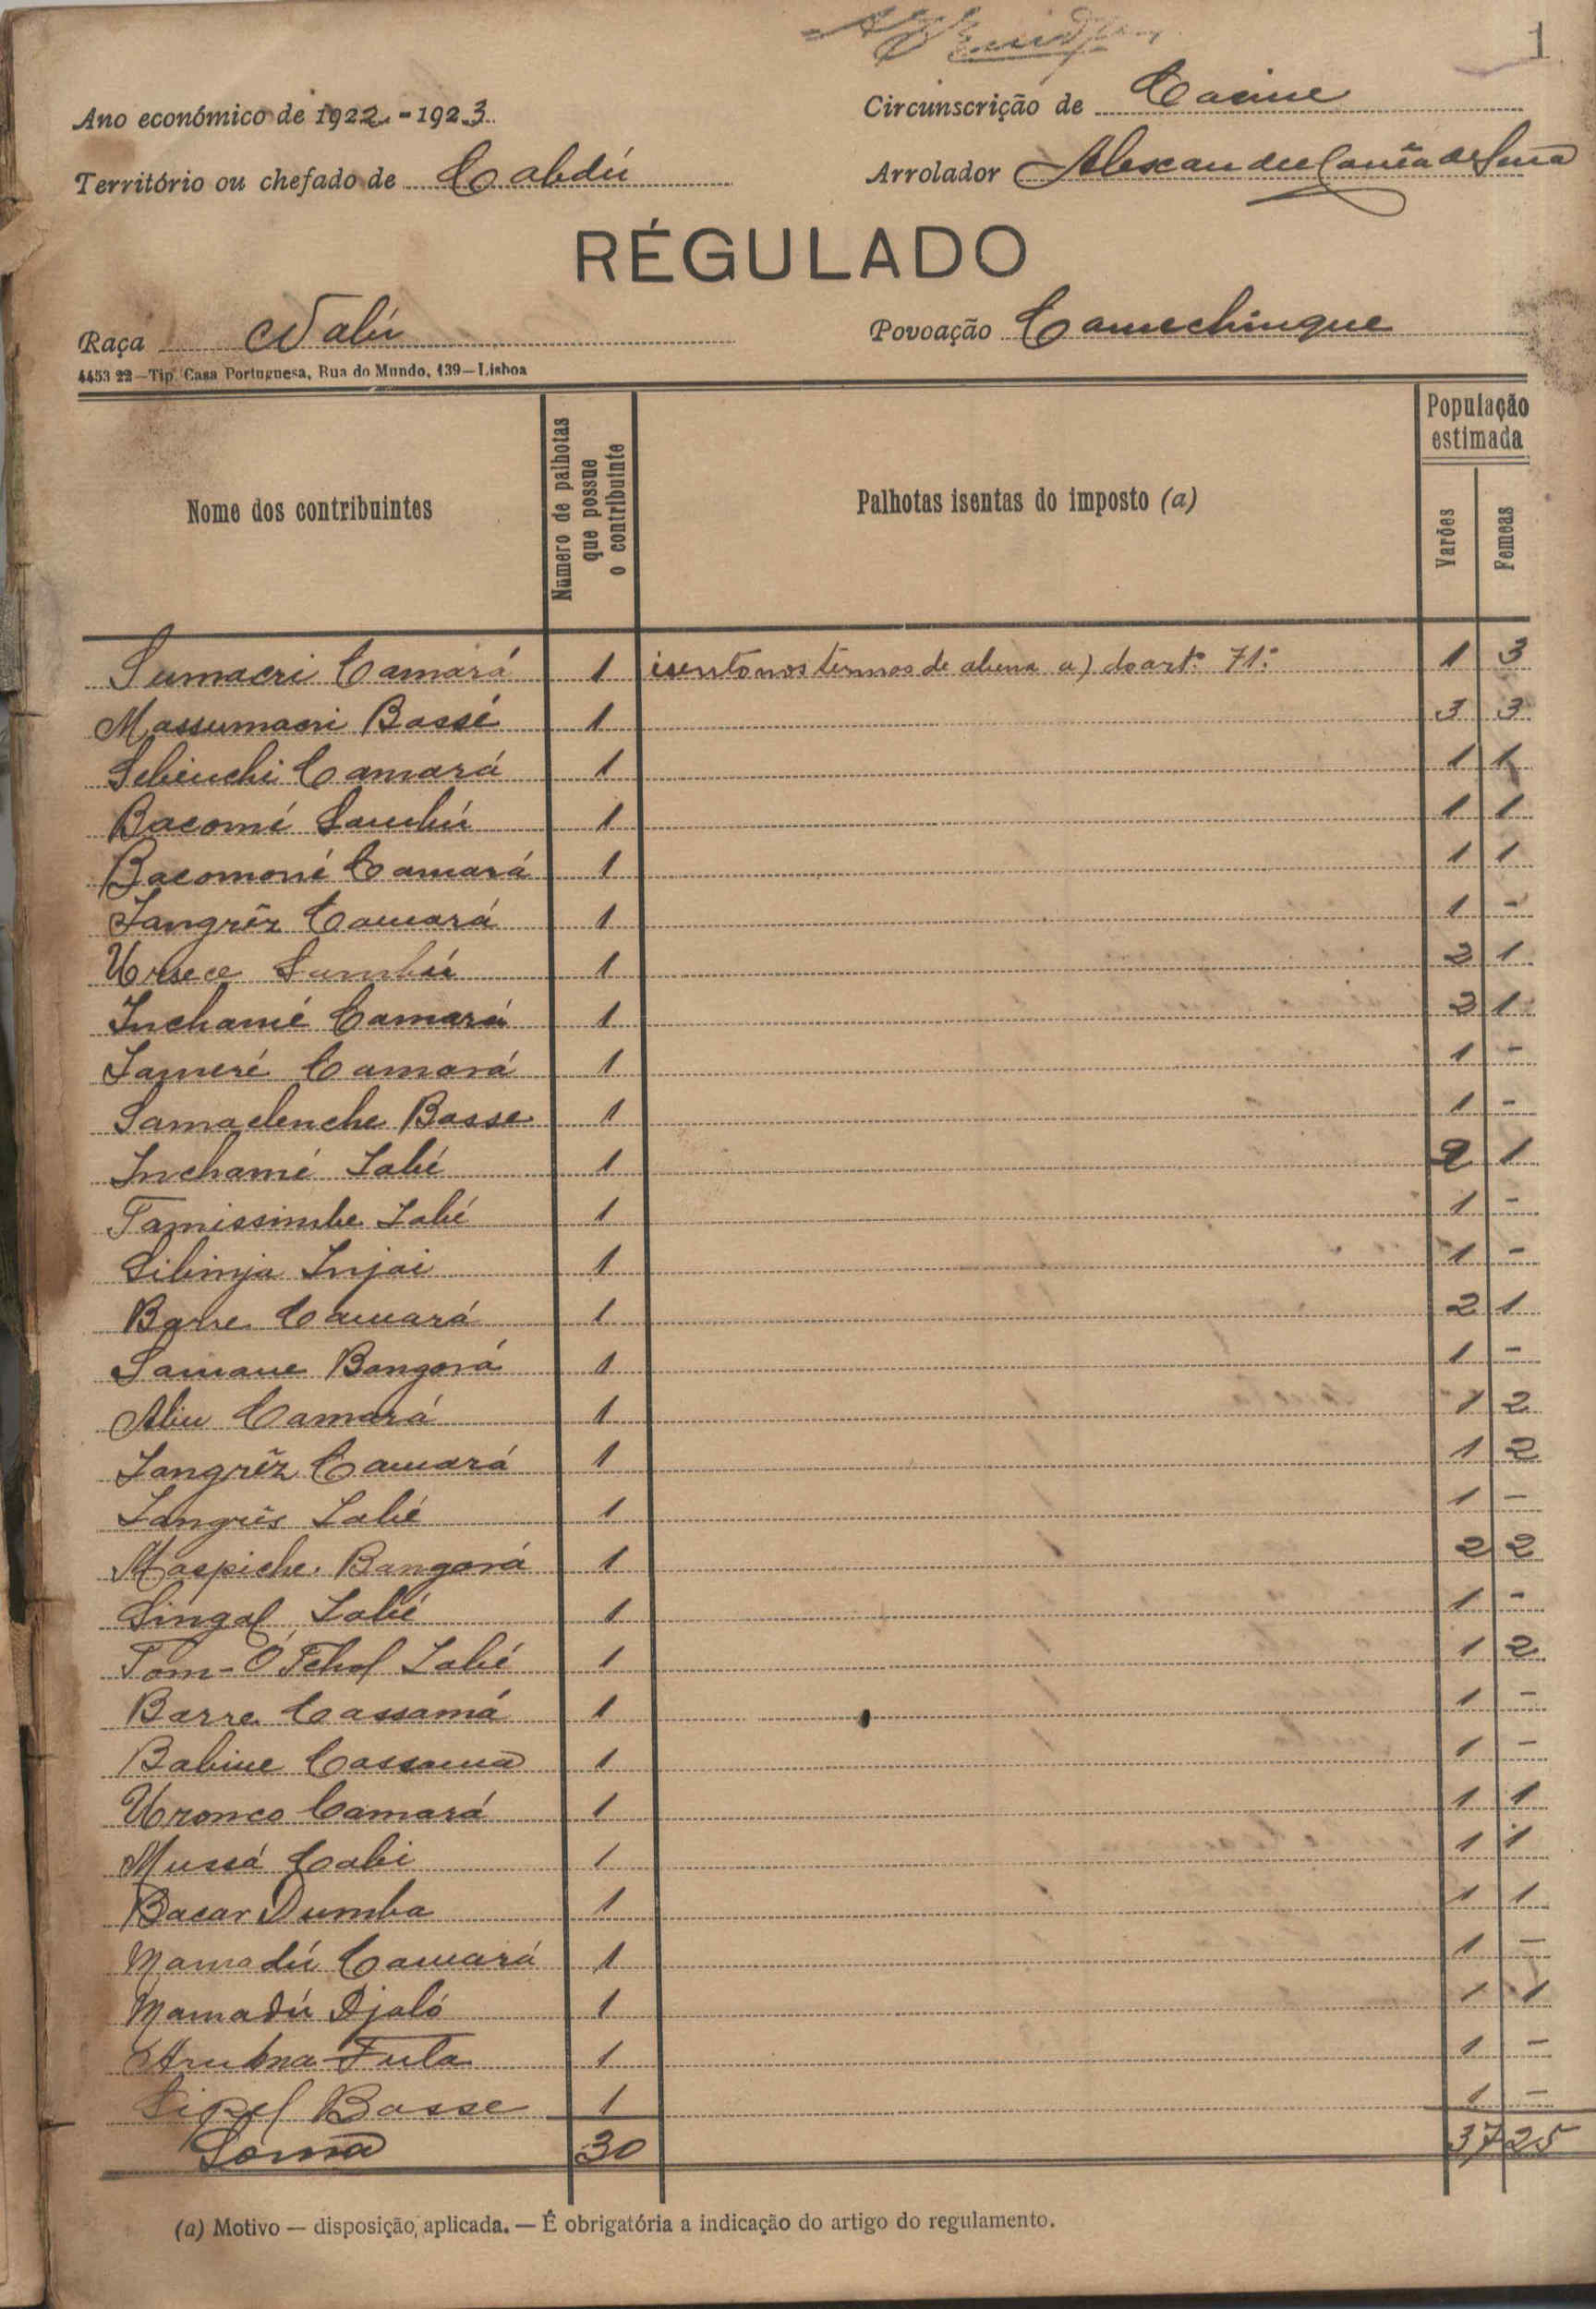 1
Ano económico de 1922-1923
Circunscrição de Cacine
Território ou chefado de Cabdú
Arrolador Alexandre Corrêa de Sena
RÉGULADO
Raça Nalú
Povoação Camechingue
4453 22—Tip. Casa Portuguesa, Rua do Mundo, 139—Lisboa
Nome dos contribuintes
Número de palhotas que possue o contribuinte
Palhotas isentas do imposto (a)
População estimada
Varões
Femeas
Sumacri Camará 1 isento nos termos de alinea a) do artº 71º 1 3
Massumacri Bassé 1 3 3
Sebenchi Camará 1 1 1
Bacomé Sambú 1 1 1
Bacomoné Camará 1 1 1
Iangrêz Camará 1 1 -
Ursece Sambú 1 2 1
Inchamé Camará 1 2 1
Iameré Camará 1 1 -
Samaclenche Basse 1 1 -
Inchamé Iabé 1 2 1
Tamissimbe Iabé 1 1 -
Sibinja Injai 1 1 -
Barre Camará 1 2 1
Samane Bangorá 1 1 -
Aliu Camará 1 1 2
Iangrêz Camará 1 1 2
Iangrês Iabé 1 1 -
Maspiche Bangorá 1 2 2
Singal Iabé 1 1 -
Tom-Ó Fchol Iabé 1 1 2
Barre Cassamá 1 1 -
Babine Cassamá 1 1 -
Uronco Camará 1 1 1
Mussá Cabi 1 1 1
Bacar Dumba 1 1 1
Mamadú Camará 1 1 -
Mamadú Djaló 1 1 1
Arubna Fula 1 1 -
Sipel Basse 1 1 -
Soma 30 37 25
(a) Motivo — disposição aplicada. — É obrigatória a indicação do artigo do regulamento.